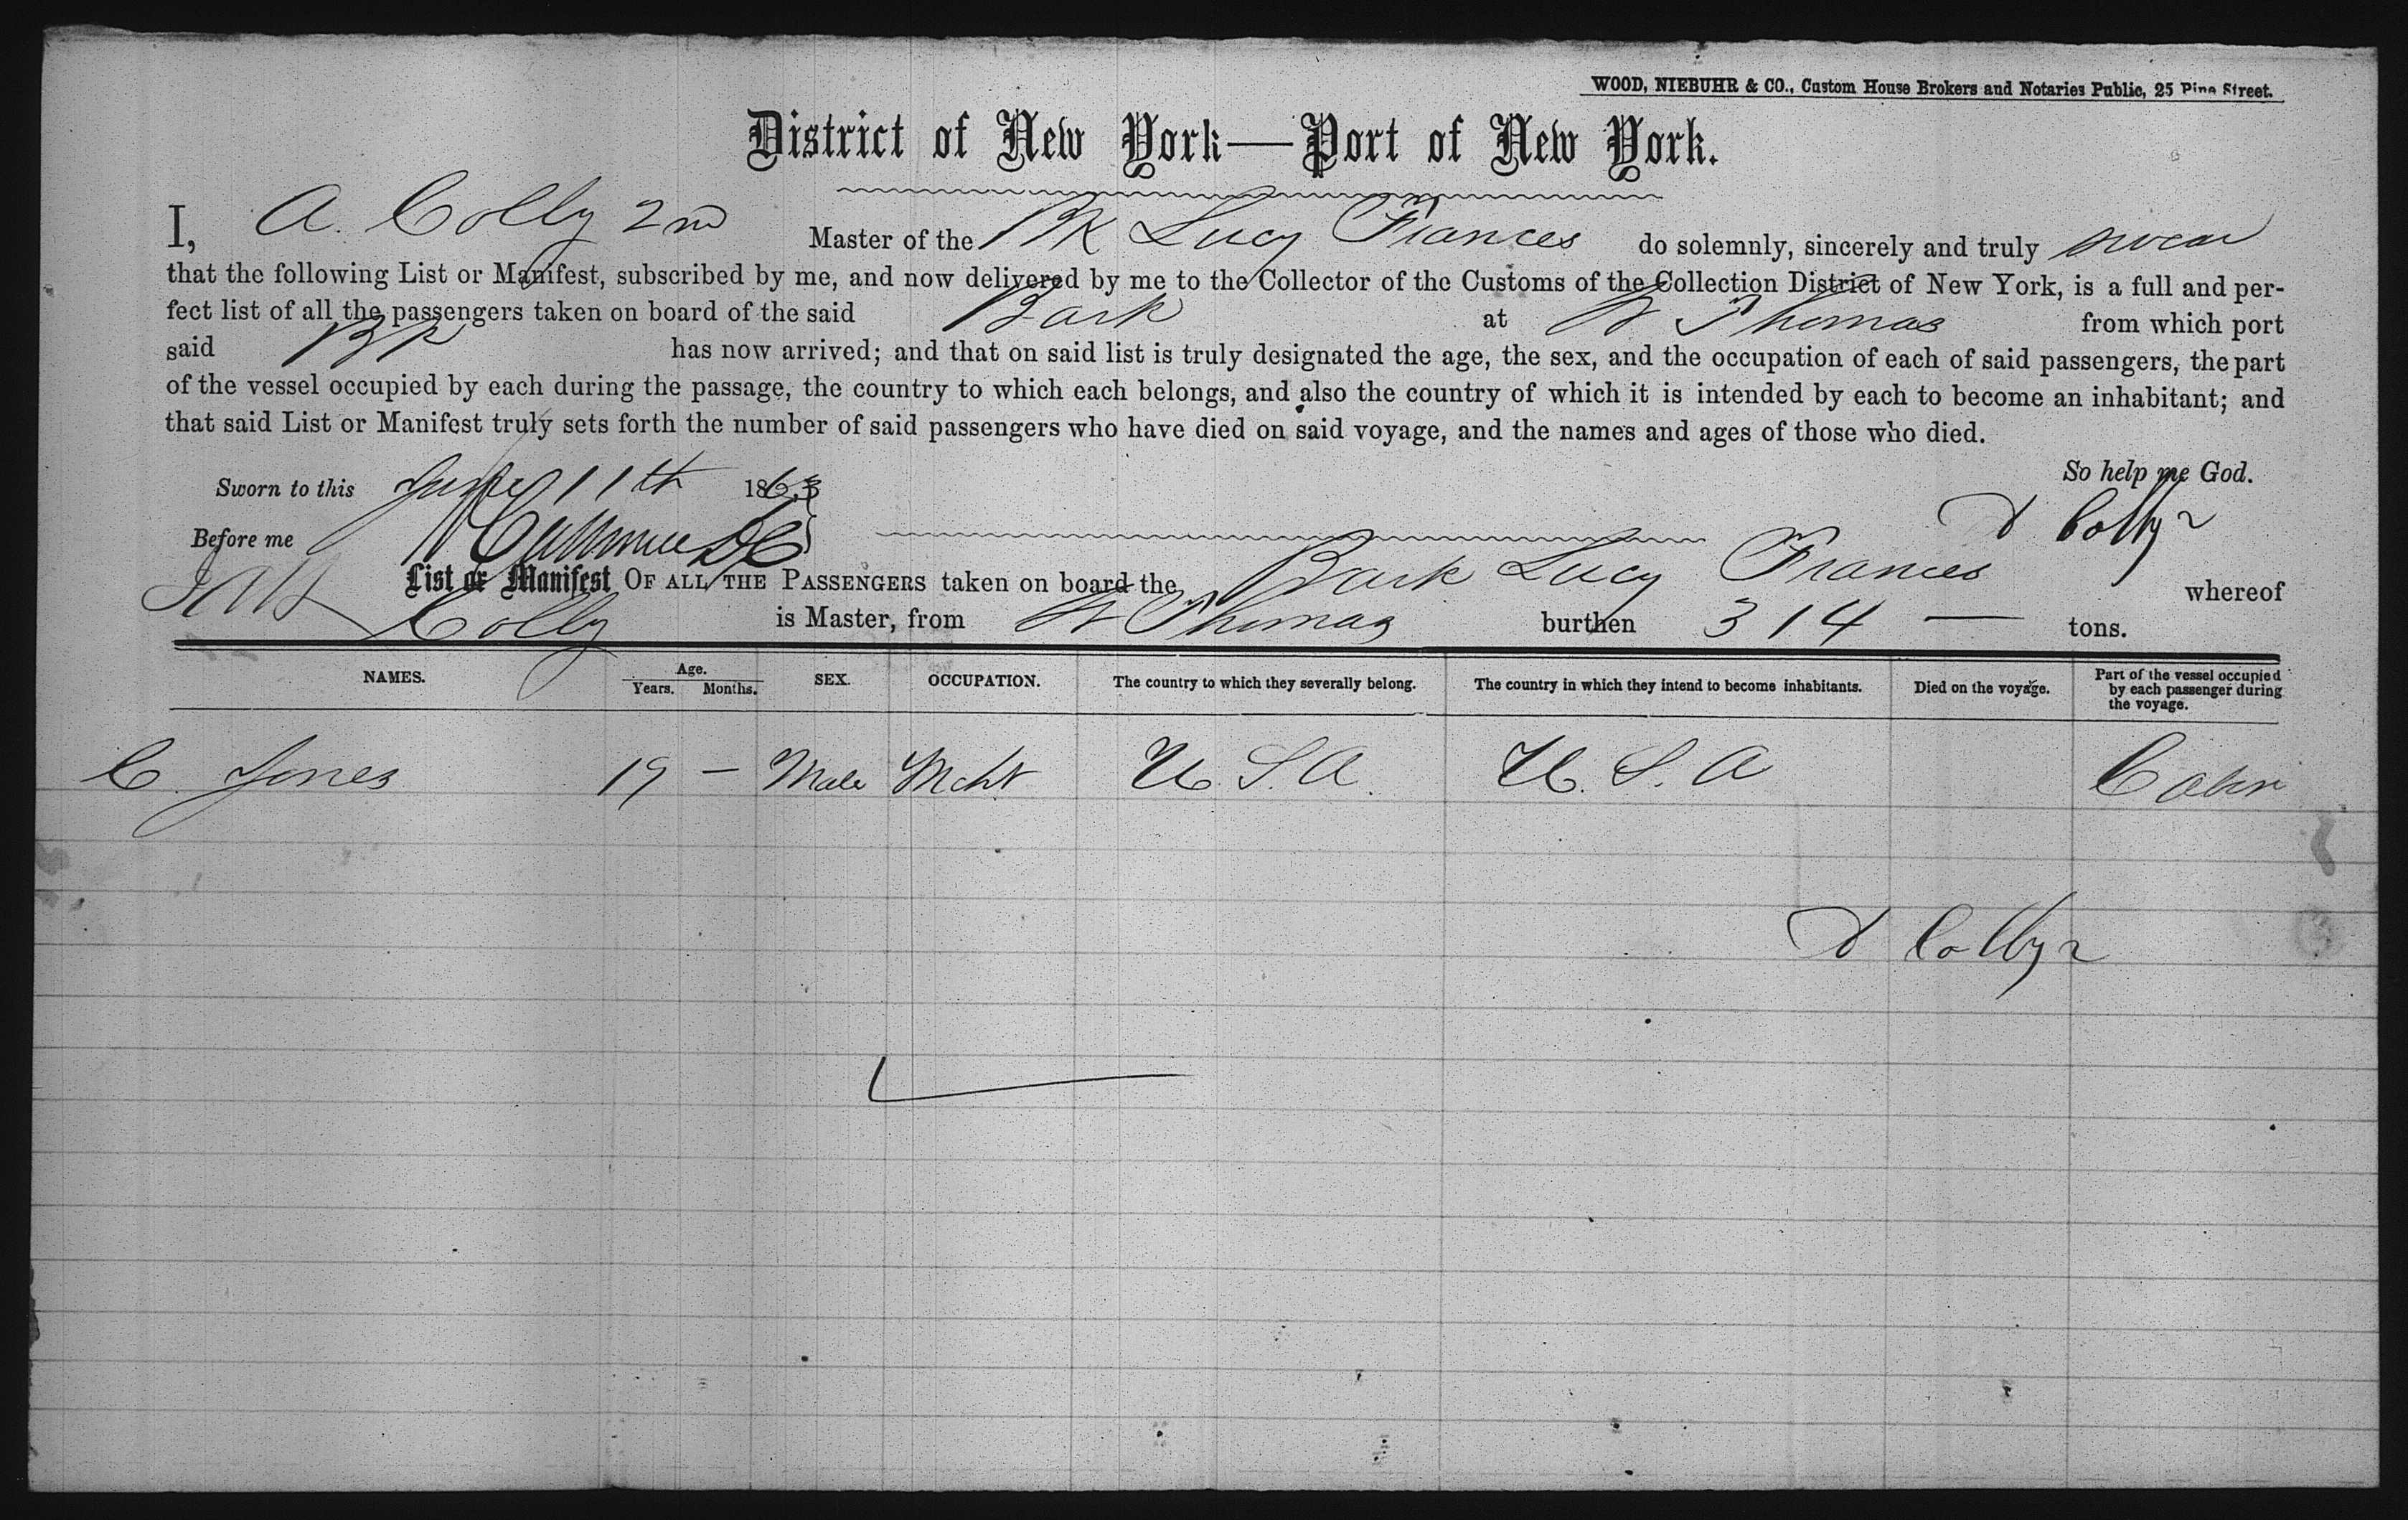 WOOD, NIEBUHR & CO., Custom House Brokers and Notaries Public, 25 Pine Street.
District of New York—Port of New York.
I, A. Colby 2nd Master of the BK Lucy Frances do solemnly, sincerely and truly swear
that the following List or Manifest, subscribed by me, and now delivered by me to the Collector of the Customs of the Collection District of New York, is a full and per-
fect list of all the passengers taken on board of the said Bark at St Thomas from which port
said BK has now arrived; and that on said list is truly designated the age, the sex, and the occupation of each of said passengers, the part
of the vessel occupied by each during the passage, the country to which each belongs, and also the country of which it is intended by each to become an inhabitant; and
that said List or Manifest truly sets forth the number of said passengers who have died on said voyage, and the names and ages of those who died.
So help me God.
Sworn to this June 11th 1863
A Colby 2
Before me
List or Manifest OF ALL THE PASSENGERS taken on board the Bark Lucy Frances whereof
Colby is Master, from St Thomas burthen 314 — tons.
NAMES. Age. Years. Months. SEX. OCCUPATION. The country to which they severally belong. The country in which they intend to become inhabitants. Died on the voyage. Part of the vessel occupied by each passenger during the voyage.
C. Jones 19 — Male Mcht U.S.A. U.S.A Cabin
A Colby 2